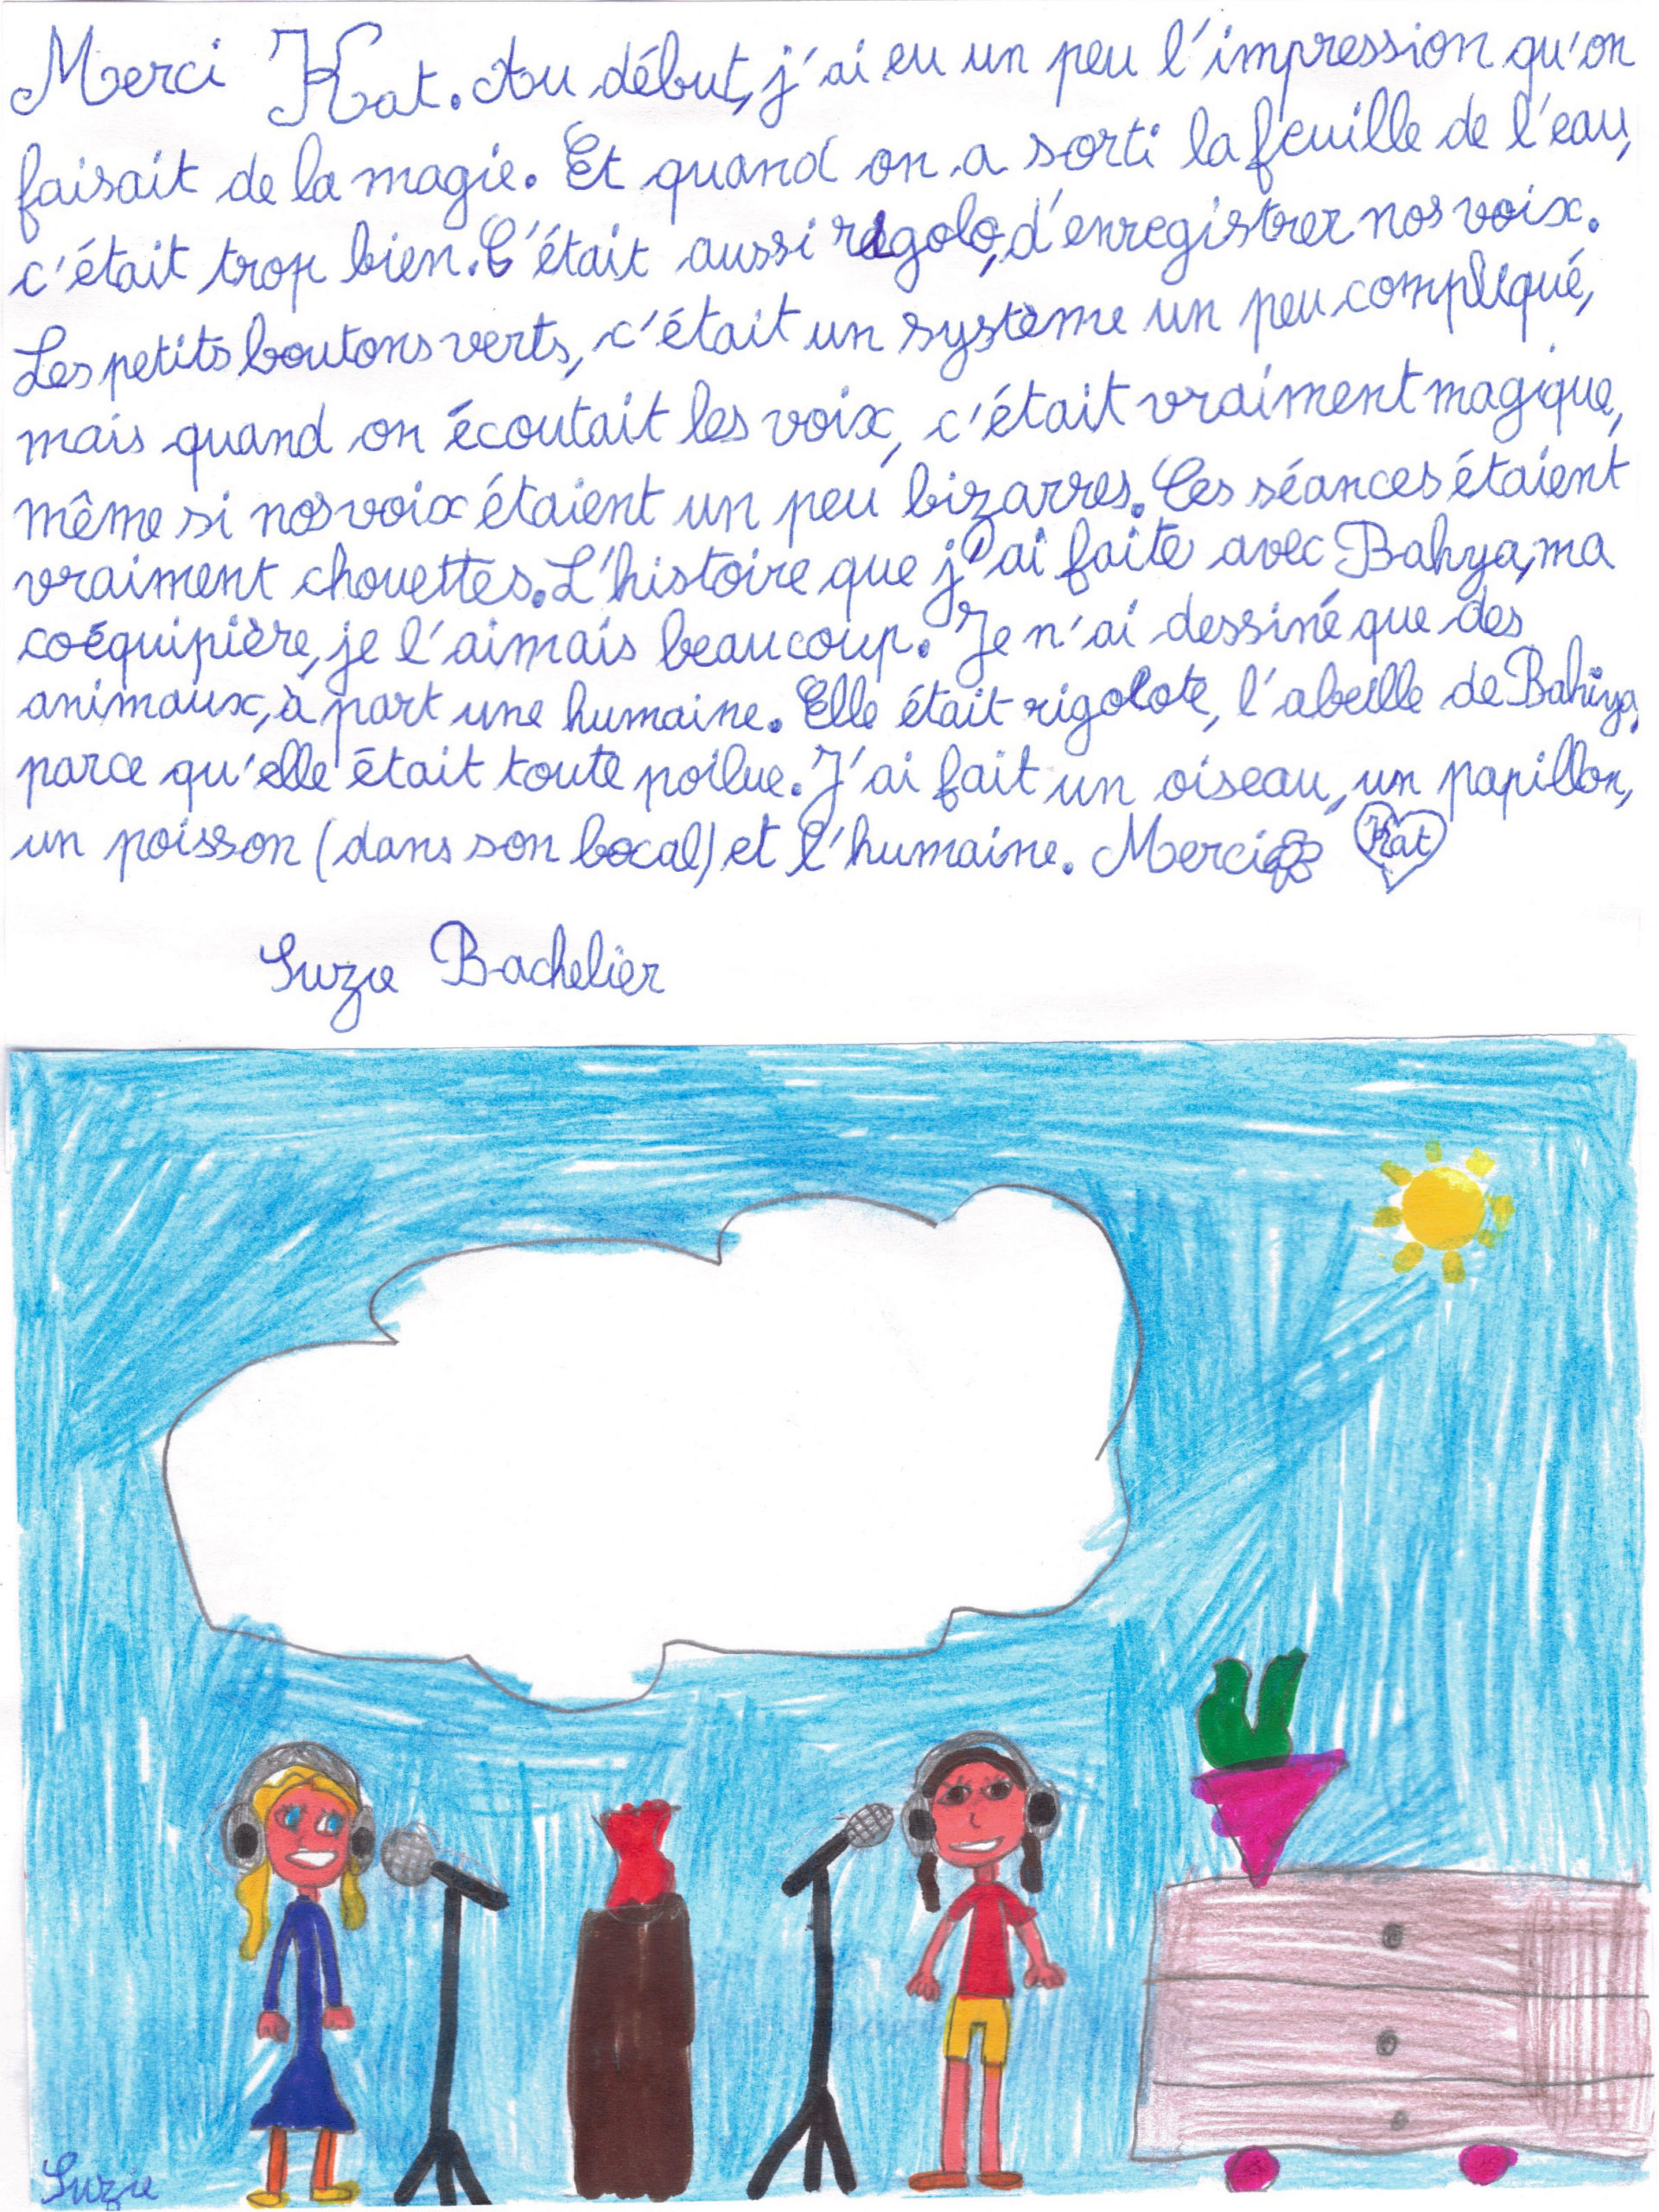 Merci Kat. Au début, j'ai eu un peu l'impression qu'on
faisait de la magie. Et quand on a sorti la feuille de l'eau,
c'était trop bien. C'était aussi rigolo, d'enregistrer nos voix.
Les petits boutons verts, c'était un système un peu compliqué,
mais quand on écoutait les voix, c'était vraiment magique,
même si nos voix étaient un peu bizarres. Ces séances étaient
vraiment chouettes. L'histoire que j'ai faite avec Bahya, ma
coéquipière, je l'aimais beaucoup. Je n'ai dessiné que des
animaux, à part une humaine. Elle était rigolote, l'abeille de Bahiya,
parce qu'elle était toute poilue. J'ai fait un oiseau, un papillon,
un poisson (dans son bocal) et l'humaine. Merci Kat
Suzie Bachelier
Suzie